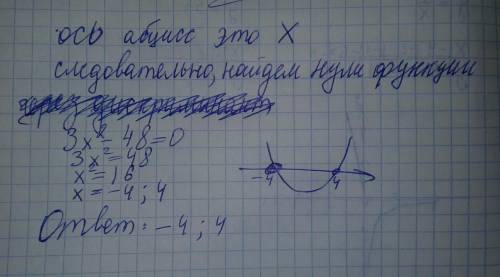 ось абцисс это X
следовательно, найдем нули функции
3x²-48=0
3x²=48
x²=16
x=-4; 4
-4 4
Ответ: -4; 4